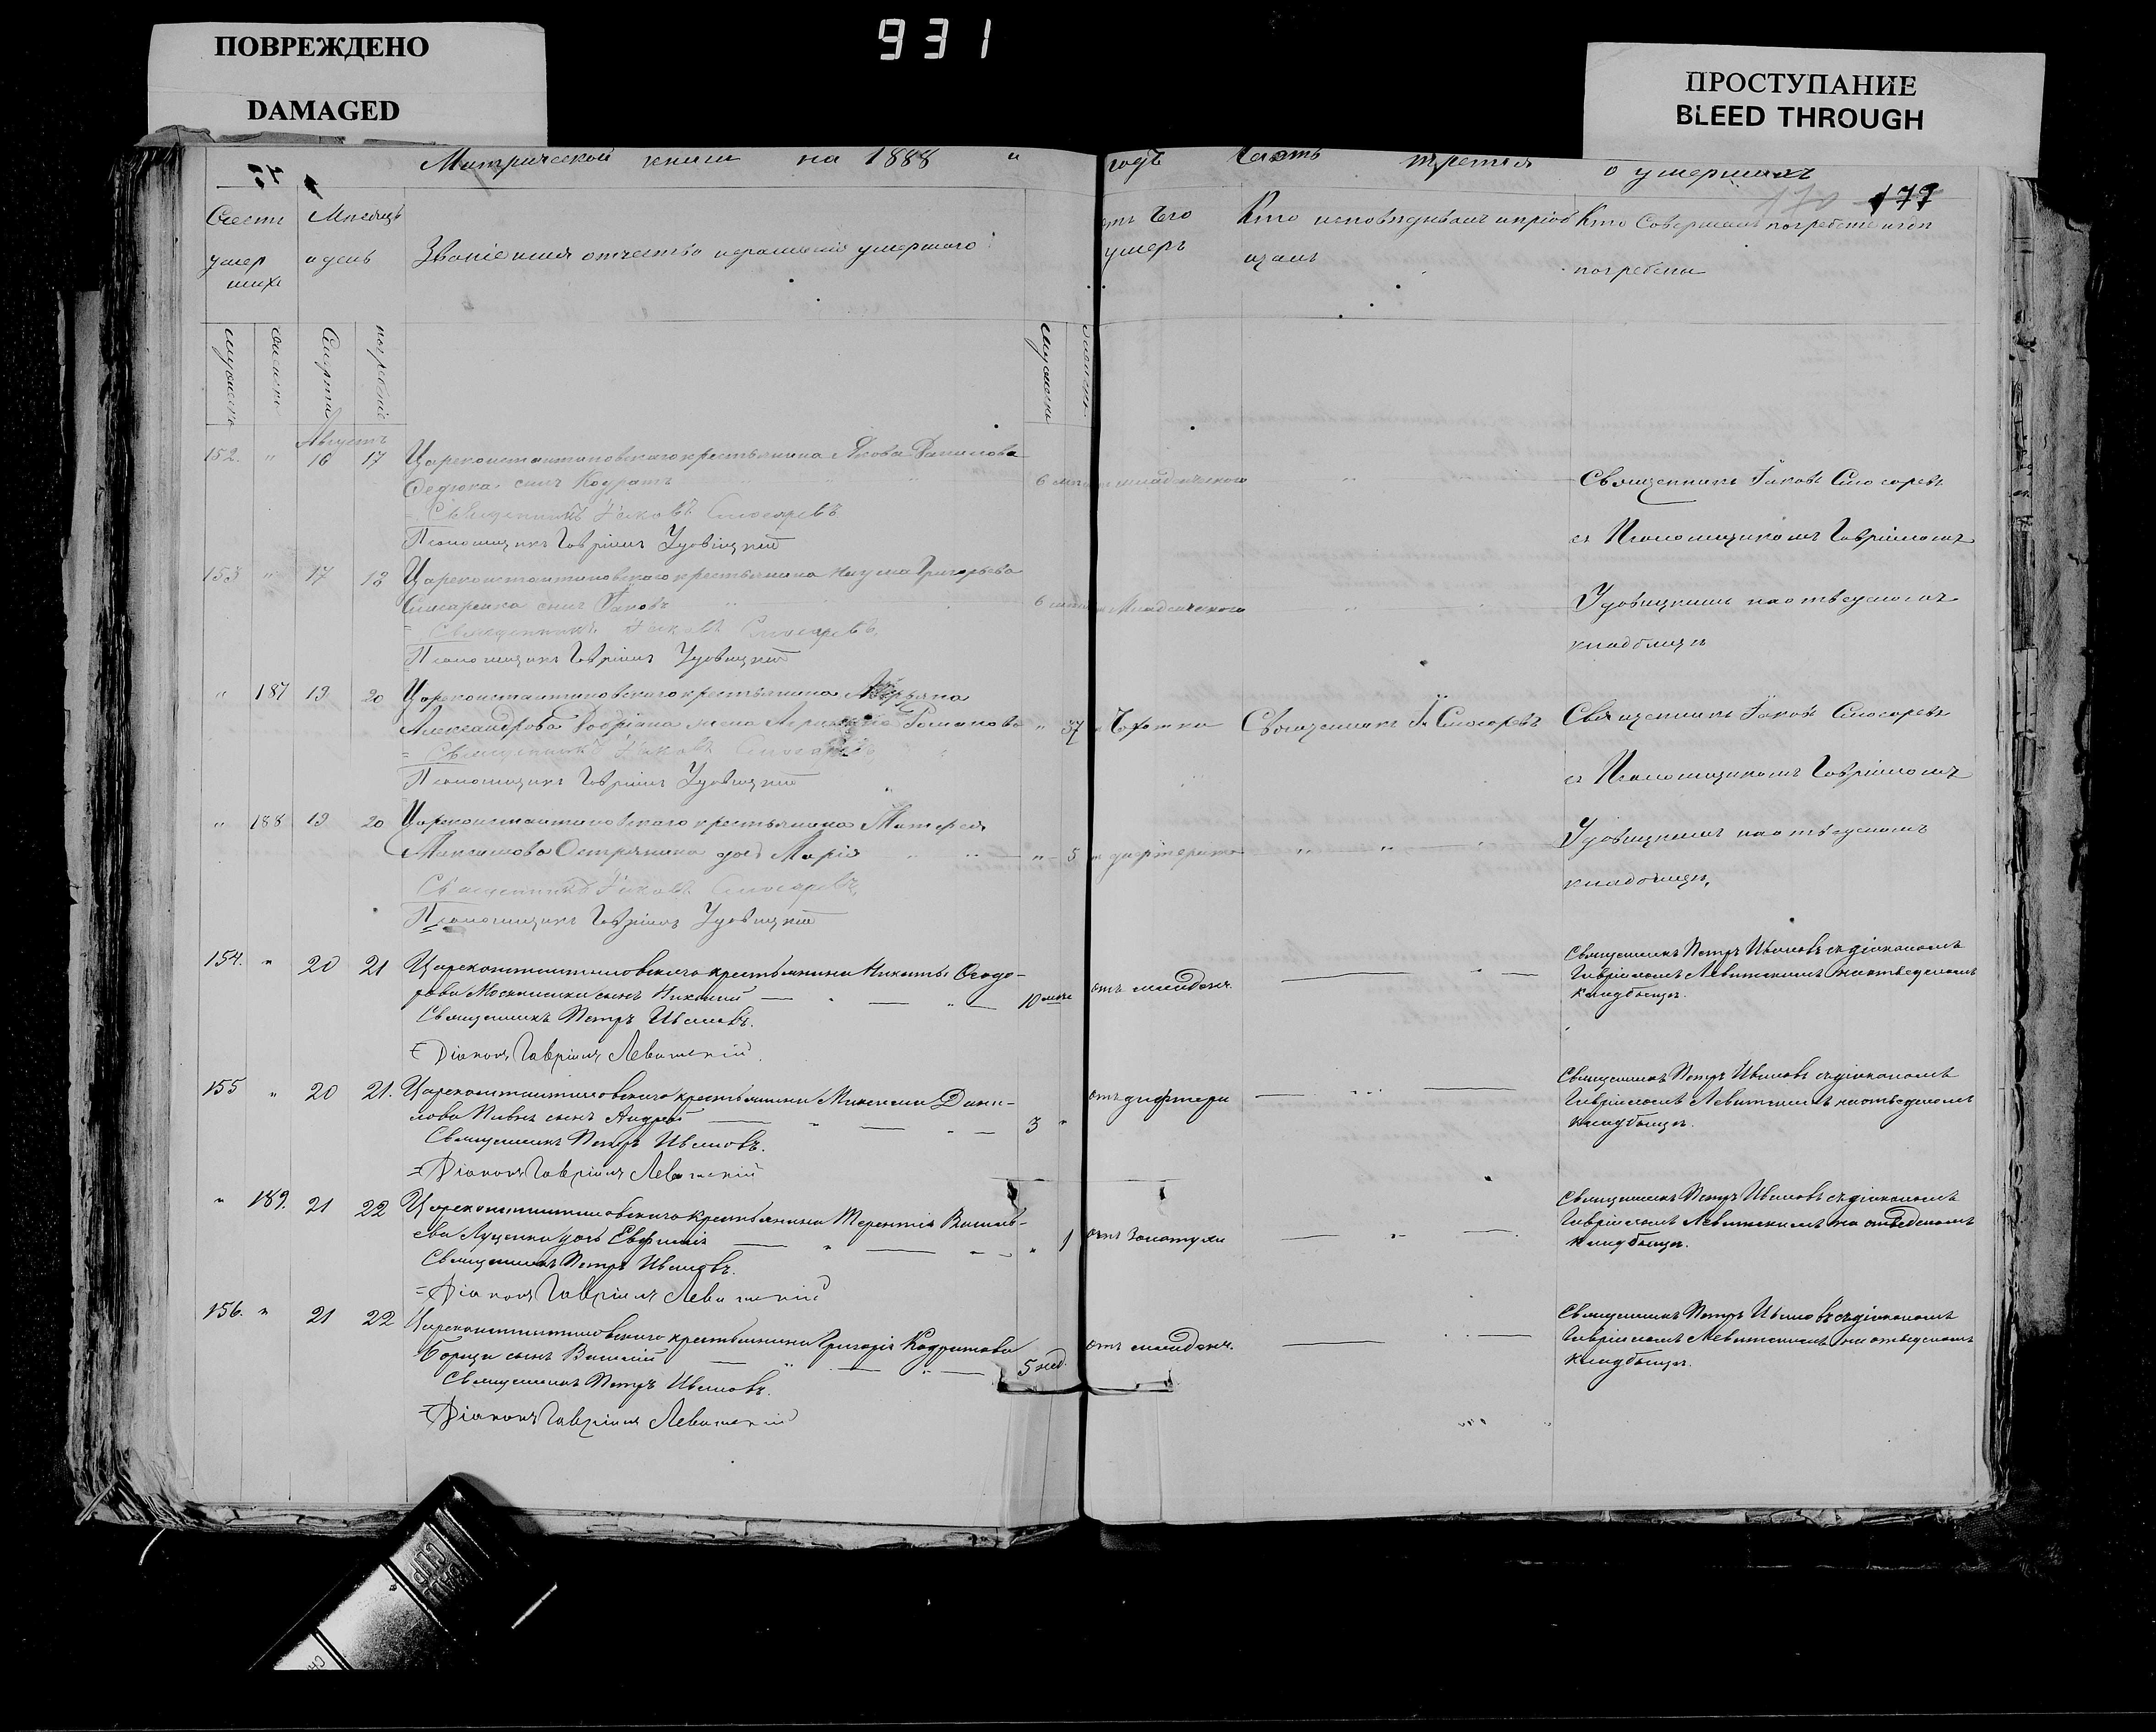 ПОВРЕЖДЕНО
DAMAGED
931
ПРОСТУПАНИЕ
BLEED THROUGH
Метрической книги на 1888 "
годъ Часть третья о умершихъ
177
Счетъ Мѣсяцъ
умер и день Званіе имя отчество и фамилія умершаго
шихъ
Отъ чего Кто исповѣдывалъ и пріоб Кто Совершалъ погребеніе и гдѣ
умеръ щалъ погребены
мужеска женска Смерти погребенія мужеска женска
Августъ
152. " 16 17 Цареконстантиновскаго крестьянина Якова Данилова
Федюка сынъ Кодратъ 6 мѣс младенческого " Священникъ Іаковъ Слюсаревъ
Священникъ Іаковъ Слюсаревъ
Псаломщикъ Гавріилъ Удовицкій съ Псаломщикомъ Гавріиломъ
153 " 17 18 Цареконстантиновскаго крестьянина Наума Григорьева
Слюсаренка сынъ Іаковъ 6 Младенческого " Удовицкимъ на отведеномъ
Священникъ Іаковъ Слюсаревъ
Псаломщикъ Гавріилъ Удовицкій кладбищѣ
" 187 19 20 Цареконстантиновскаго крестьянина
Александрова жена Романова " 37 Чахотки Священникъ І. Слюсаревъ Священникъ Іаковъ Слюсаревъ
Священникъ Іаковъ Слюсаревъ
Псаломщикъ Гавріилъ Удовицкій съ Псаломщикомъ Гавріиломъ
" 188 19 20 Цареконстантиновскаго крестьянина Матфея
Максимова Остряника дочь Марія " 5 дифтерита " " Удовицкимъ на отведеномъ
Священникъ Іаковъ Слюсаревъ кладбищѣ,
Псаломщикъ Гавріилъ Удовицкій
154. " 20 21 Цареконстантиновскаго крестьянина Никиты Феодо-
рова сынъ Николай — " — " — 10 мѣс отъ младенч. — " — Священникъ Петръ Ивановъ съ діакономъ
Гавріиломъ Левитскимъ на отведеномъ
кладбищѣ.
Священникъ Петръ Ивановъ.
Діаконъ Гавріилъ Левитскій.
155 " 20 21. Цареконстантиновскаго крестьянина Дани-
лова Пивня сынъ Андрей — " — " — 3 " отъ дифтери — " — Священникъ Петръ Ивановъ съ діакономъ
Гавріиломъ Левитскимъ на отведеномъ
кладбищѣ.
Священникъ Петръ Ивановъ.
Діаконъ Гавріилъ Левитскій
" 189. 21 22 Цареконстантиновскаго крестьянина Терентія Василь-
ева Луценка дочь Евфимія — " — " — " 1 отъ Золотухи — " — Священникъ Петръ Ивановъ съ діакономъ
Гавріиломъ Левитскимъ на отведеномъ
кладбищѣ.
Священникъ Петръ Ивановъ.
Діаконъ Гавріилъ Левитскій
156. " 21 22 Цареконстантиновскаго крестьянина Григорія Кодратова
сынъ Василій — " — " — 5 нед. отъ младенч. — " — Священникъ Петръ Ивановъ съ діакономъ
Гавріиломъ Левитскимъ на отведеномъ
кладбищѣ.
Священникъ Петръ Ивановъ.
Діаконъ Гавріилъ Левитскій